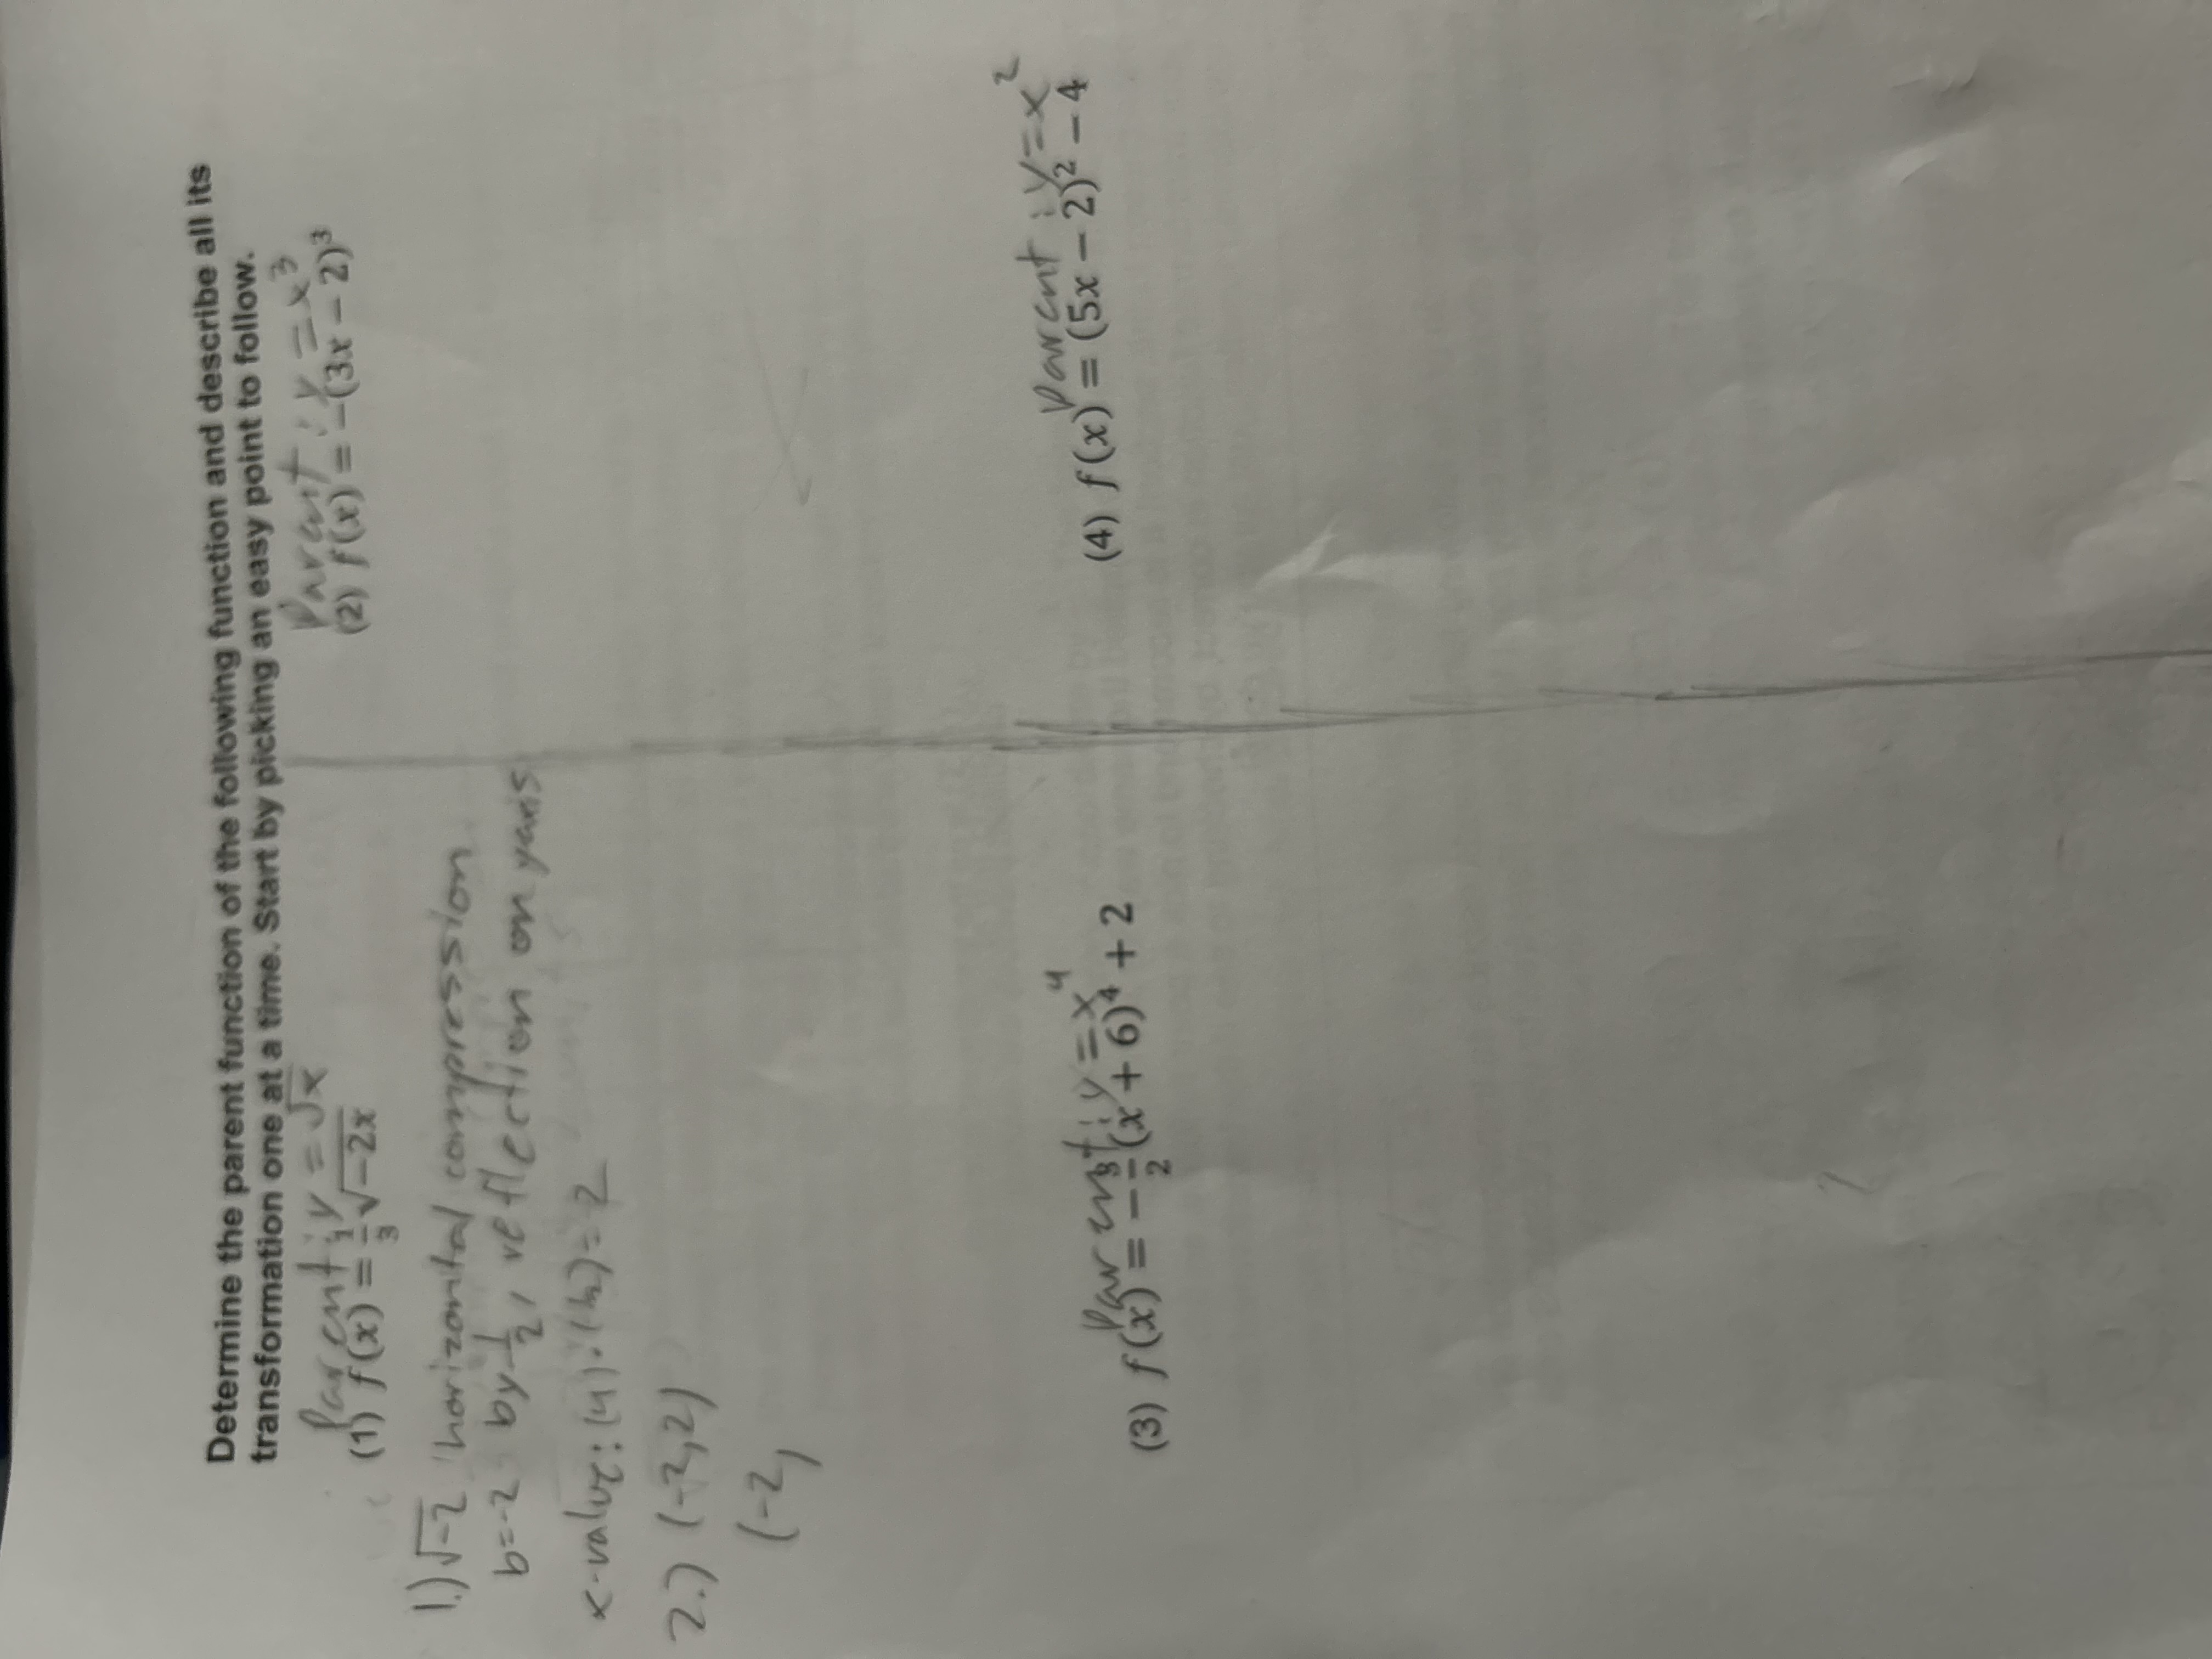 Determine the parent function of the following function and describe all its
transformation one at a time. Start by picking an easy point to follow.
Parent: y = √x
(1) f(x) = 1/3 √-2x
1.) √-2 horizontal compression
b=-2 by 1/2, reflection on yaxis
x-value: (4)·(½)=2
2.) (-2,2)
(-2,
Parent: y = x³
(2) f(x) = -(3x - 2)³
Parent: y = x⁴
(3) f(x) = -3/2 (x + 6)⁴ + 2
Parent: y = x²
(4) f(x) = (5x - 2)² - 4